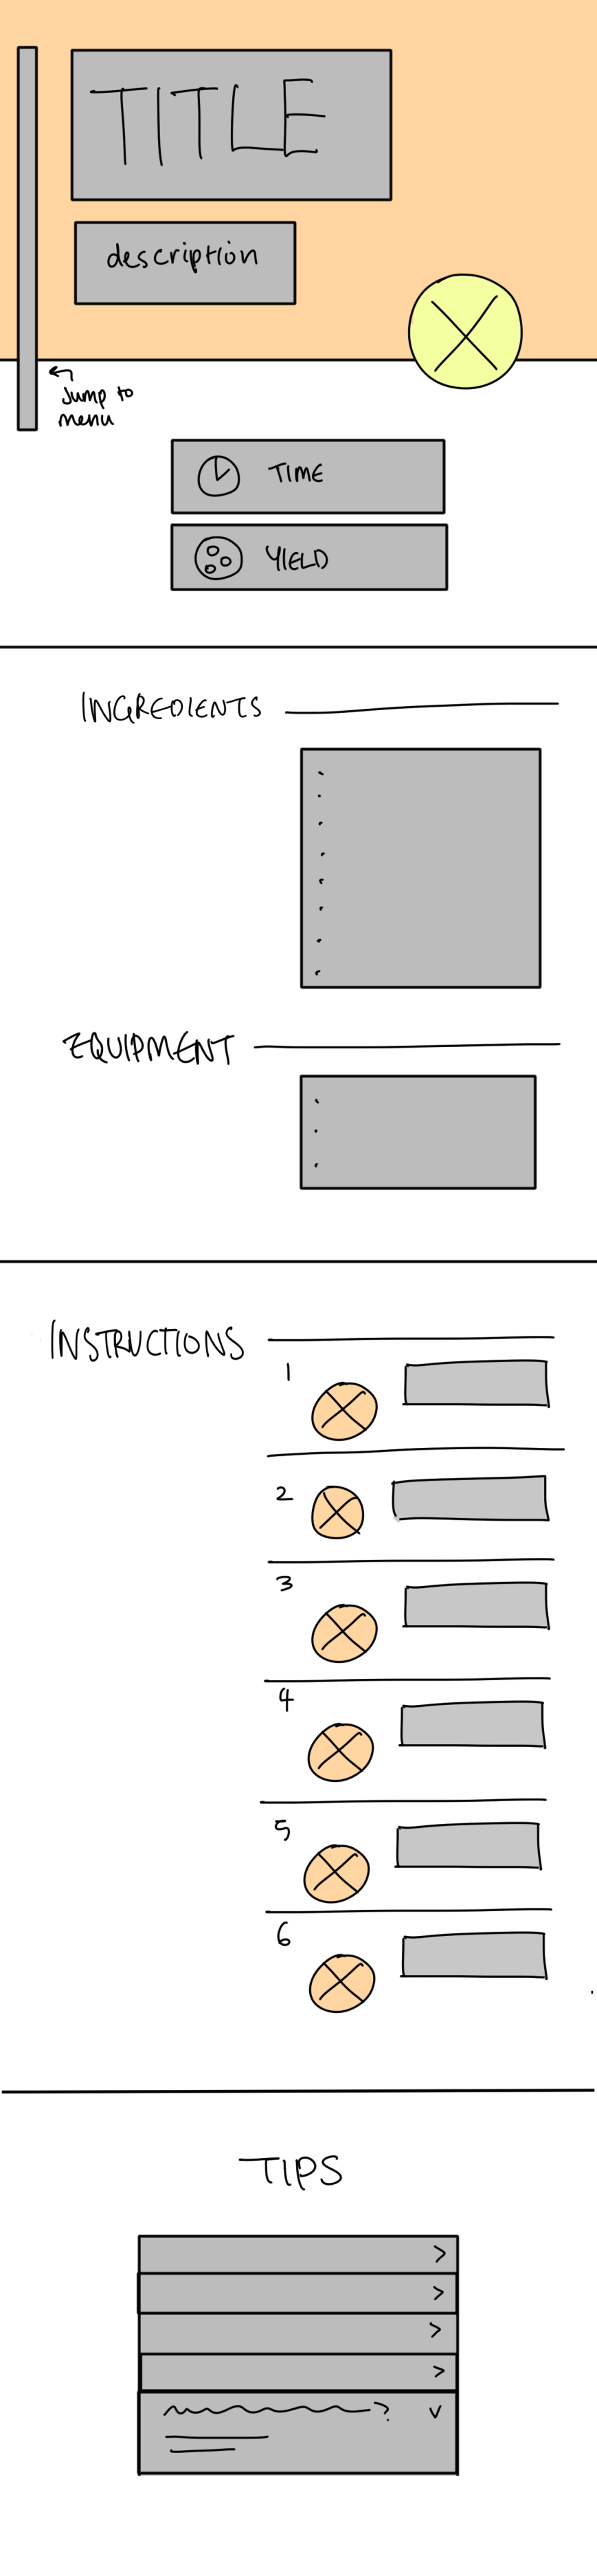 TITLE
description
Jump to
menu
TIME
YIELD
INGREDIENTS
EQUIPMENT
INSTRUCTIONS
1
2
3
4
5
6
TIPS
>
>
>
>
? v